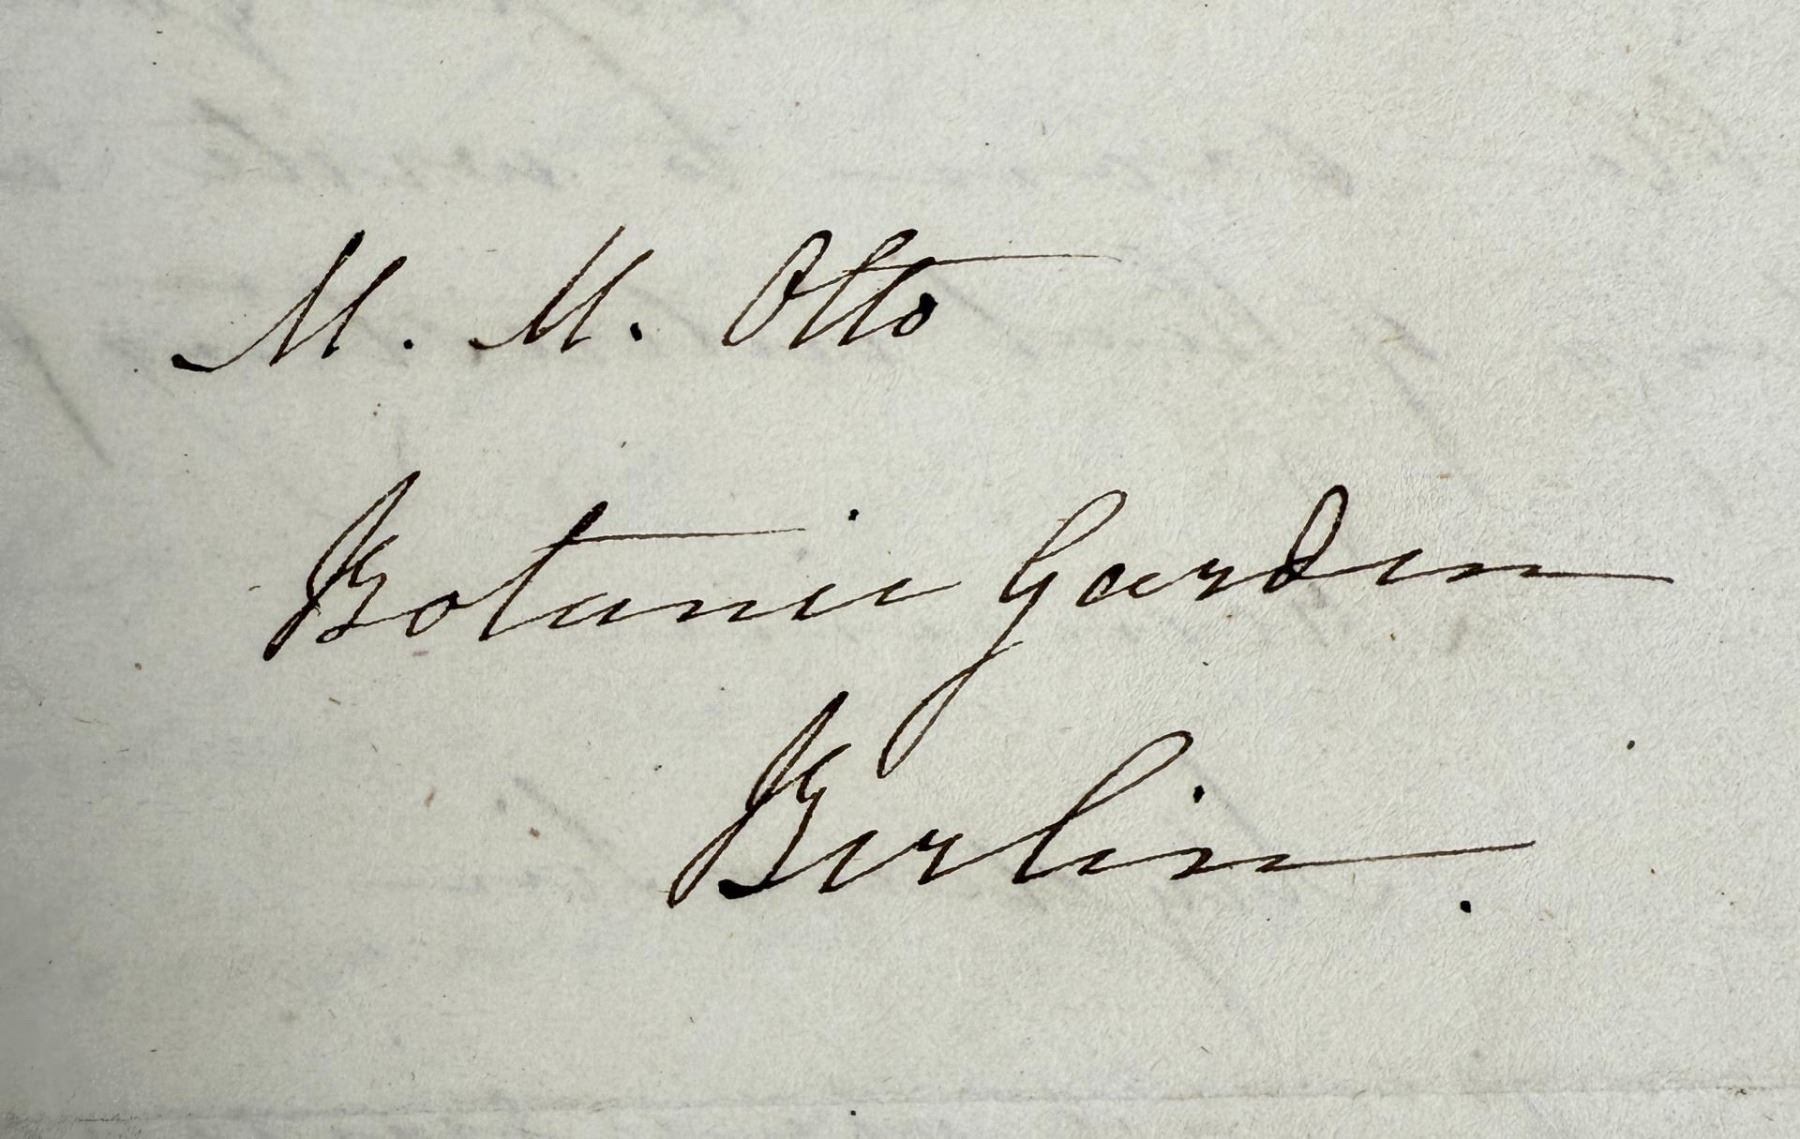 M. M. Otto
Botanic Garden
Berlin.